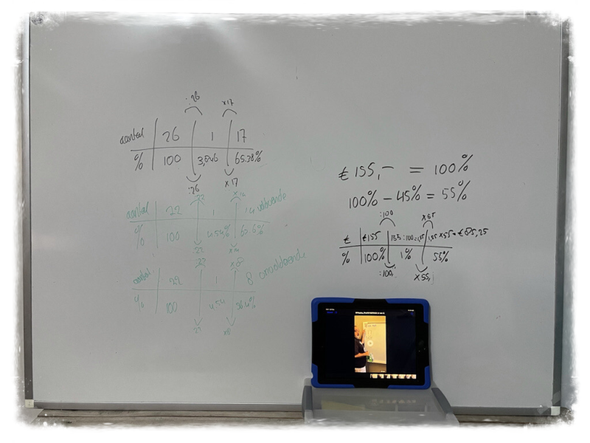 :26 x17
aantal 26 1 17
% 100 65.38%
:26 x17
aantal 22 1 14 voldoende
% 100
aantal 22 1 8 onvoldoende
% 100
€155,- = 100%
100% - 45% = 55%
:100 x55
€ €155 155:100=1,55 1,55x55=€85,25
% 100% 1% 55%
:100 x55